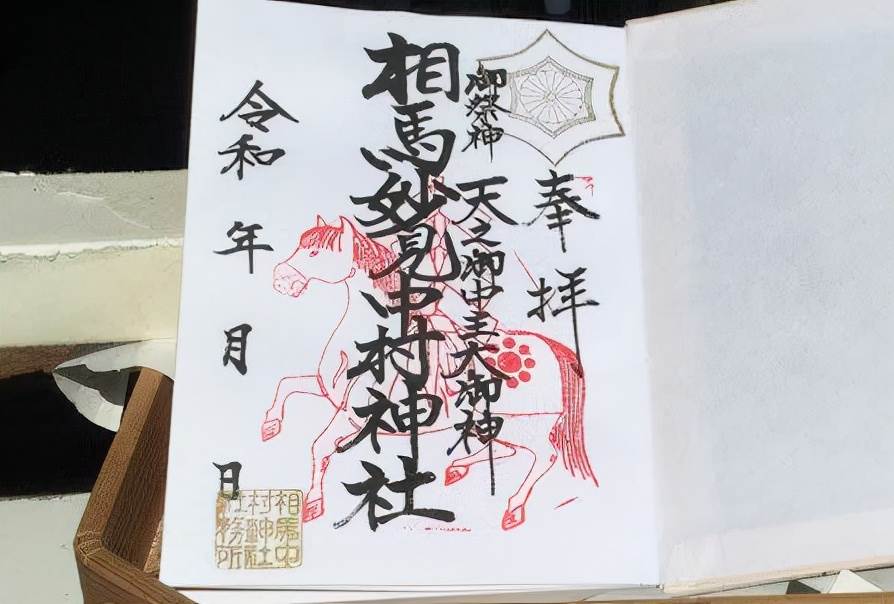 奉拝
御祭神
天之御中主大御神
相馬妙見中村神社
令和 年 月 日
相馬中
村神社
社務所